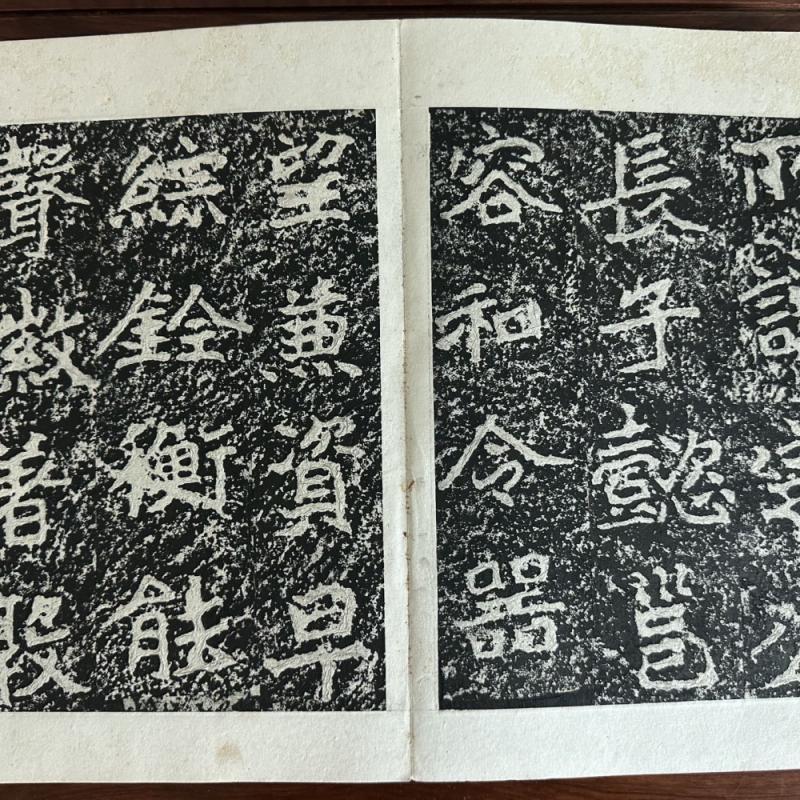 長子懿邕
容和令器
望兼資早
綜銓衡能
聲徽著敦